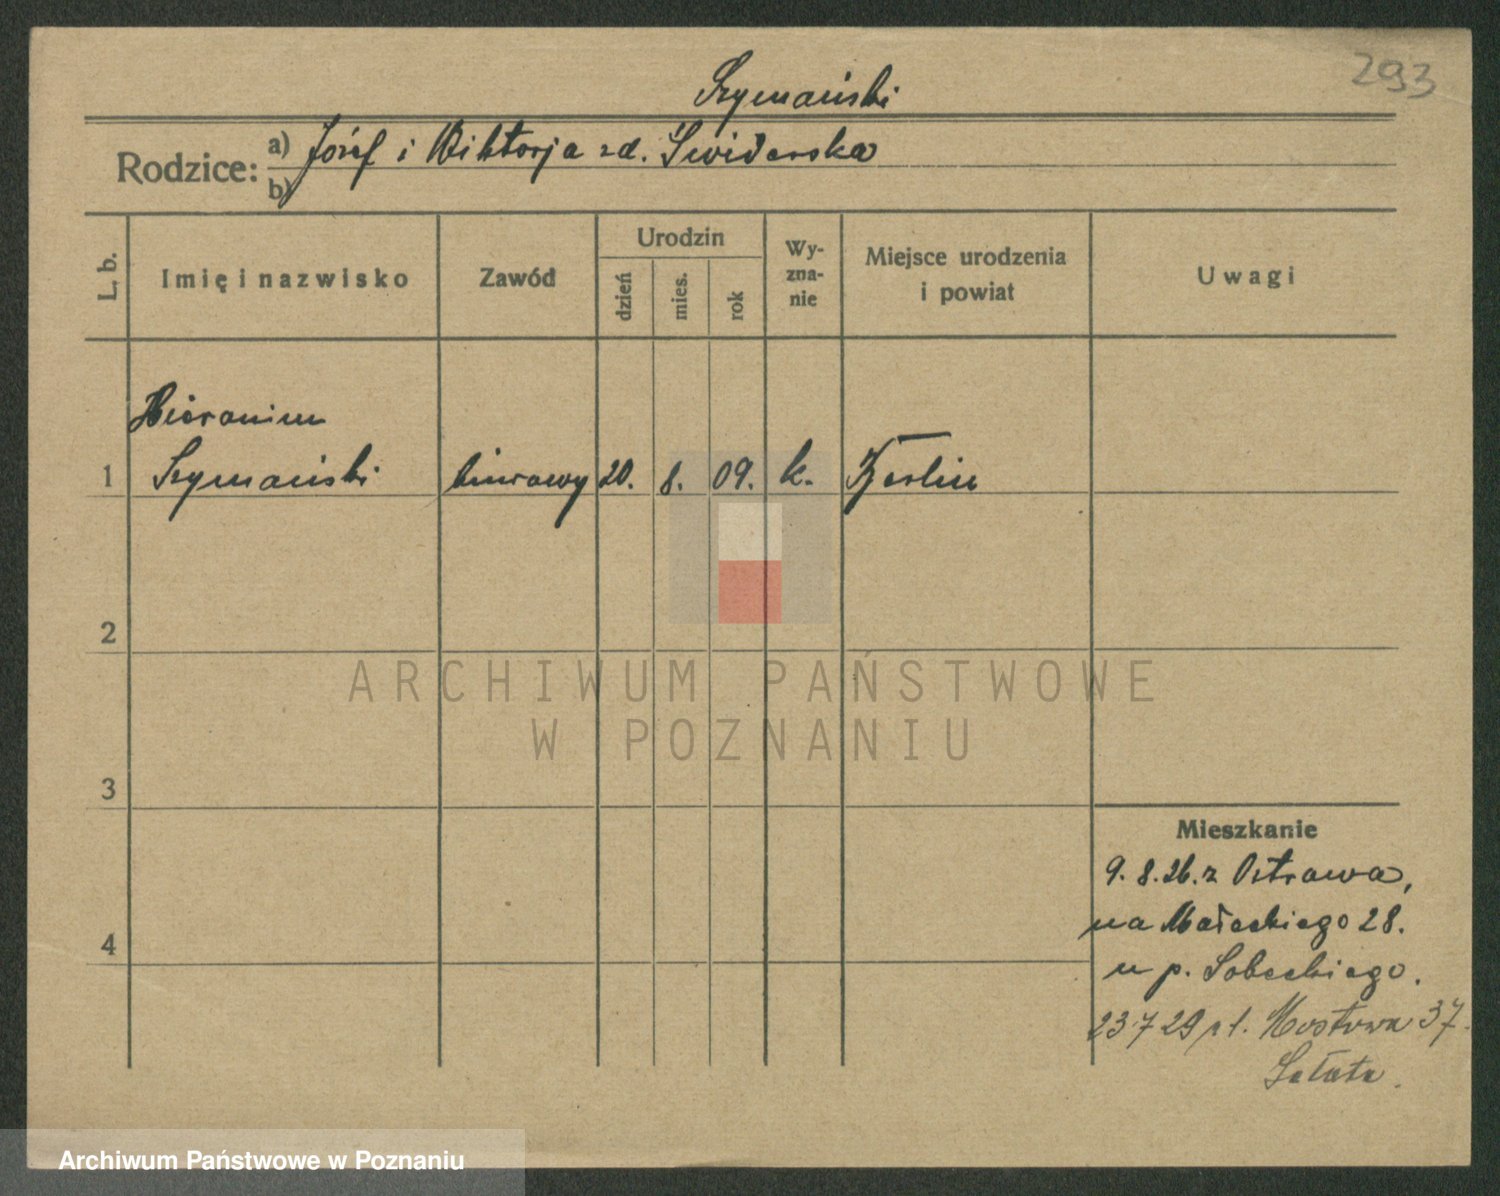 293
Szymański
Rodzice:
a) Józef i Wiktorja zd. Świderska
b)
L. b.
Imię i nazwisko
Zawód
Urodzin
dzień
mies.
rok
Wy-
zna-
nie
Miejsce urodzenia
i powiat
Uwagi
Hieronim
1 Szymański biurowy 20. 8. 09. k. Berlin
2
3
4
Mieszkanie
9. 8. 26. z Ostrowa,
na Małeckiego 28.
u p. Sobeckiego.
23 7 29 Mostowa 37.
Sałata.
ARCHIWUM PAŃSTWOWE
W POZNANIU
Archiwum Państwowe w Poznaniu